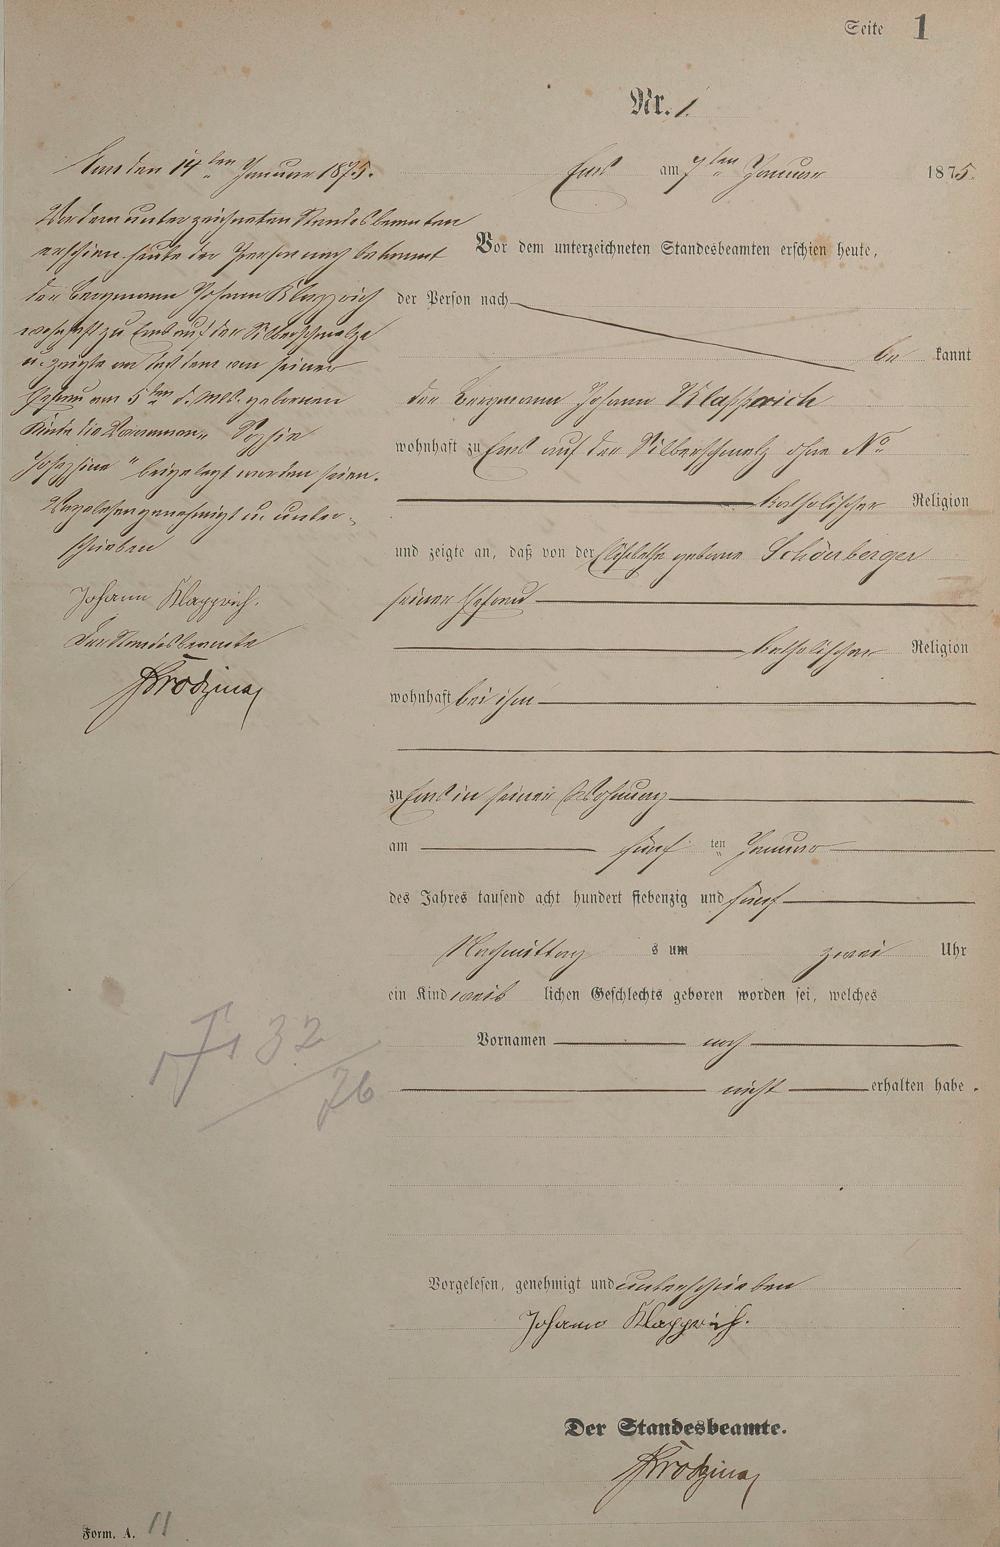 Seite 1
Nr. 1.
Ems am 7ten Januar 1875.
Vor dem unterzeichneten Standesbeamten erschien heute,
der Person nach
be kannt
der Bergmann Johann Klapperich
wohnhaft zu Ems auf der Silberschmelz ohne No
katholischer Religion
und zeigte an, daß von der geborne Schönberger
seiner Ehefrau
katholischer Religion
wohnhaft bei ihm
zu Ems in seiner Wohnung
am fünf ten Januar
des Jahres tausend acht hundert siebenzig und fünf
Nachmittag s um zwei Uhr
ein Kind weib lichen Geschlechts geboren worden sei, welches
Vornamen noch
nicht erhalten habe.
Vorgelesen, genehmigt und unterschrieben
Johann Klapprich.
Der Standesbeamte.
Ems den 14ten Januar 1875.
Vor dem unterzeichneten Standesbeamten
erschien heute der Person nach bekannt
der Bergmann Johann Klapprich
wohnhaft zu Ems auf der Silberschmelze
u. zeigte an daß dem von seiner
Ehefrau am 5ten d. Mts. gebornen
Kinde die Vornamen „Sophie
Josephine“ beigelegt worden seien.
Vorgelesen genehmigt u. unter-
schrieben
Johann Klapprich.
Der Standesbeamte
32
76
Form. A. 11